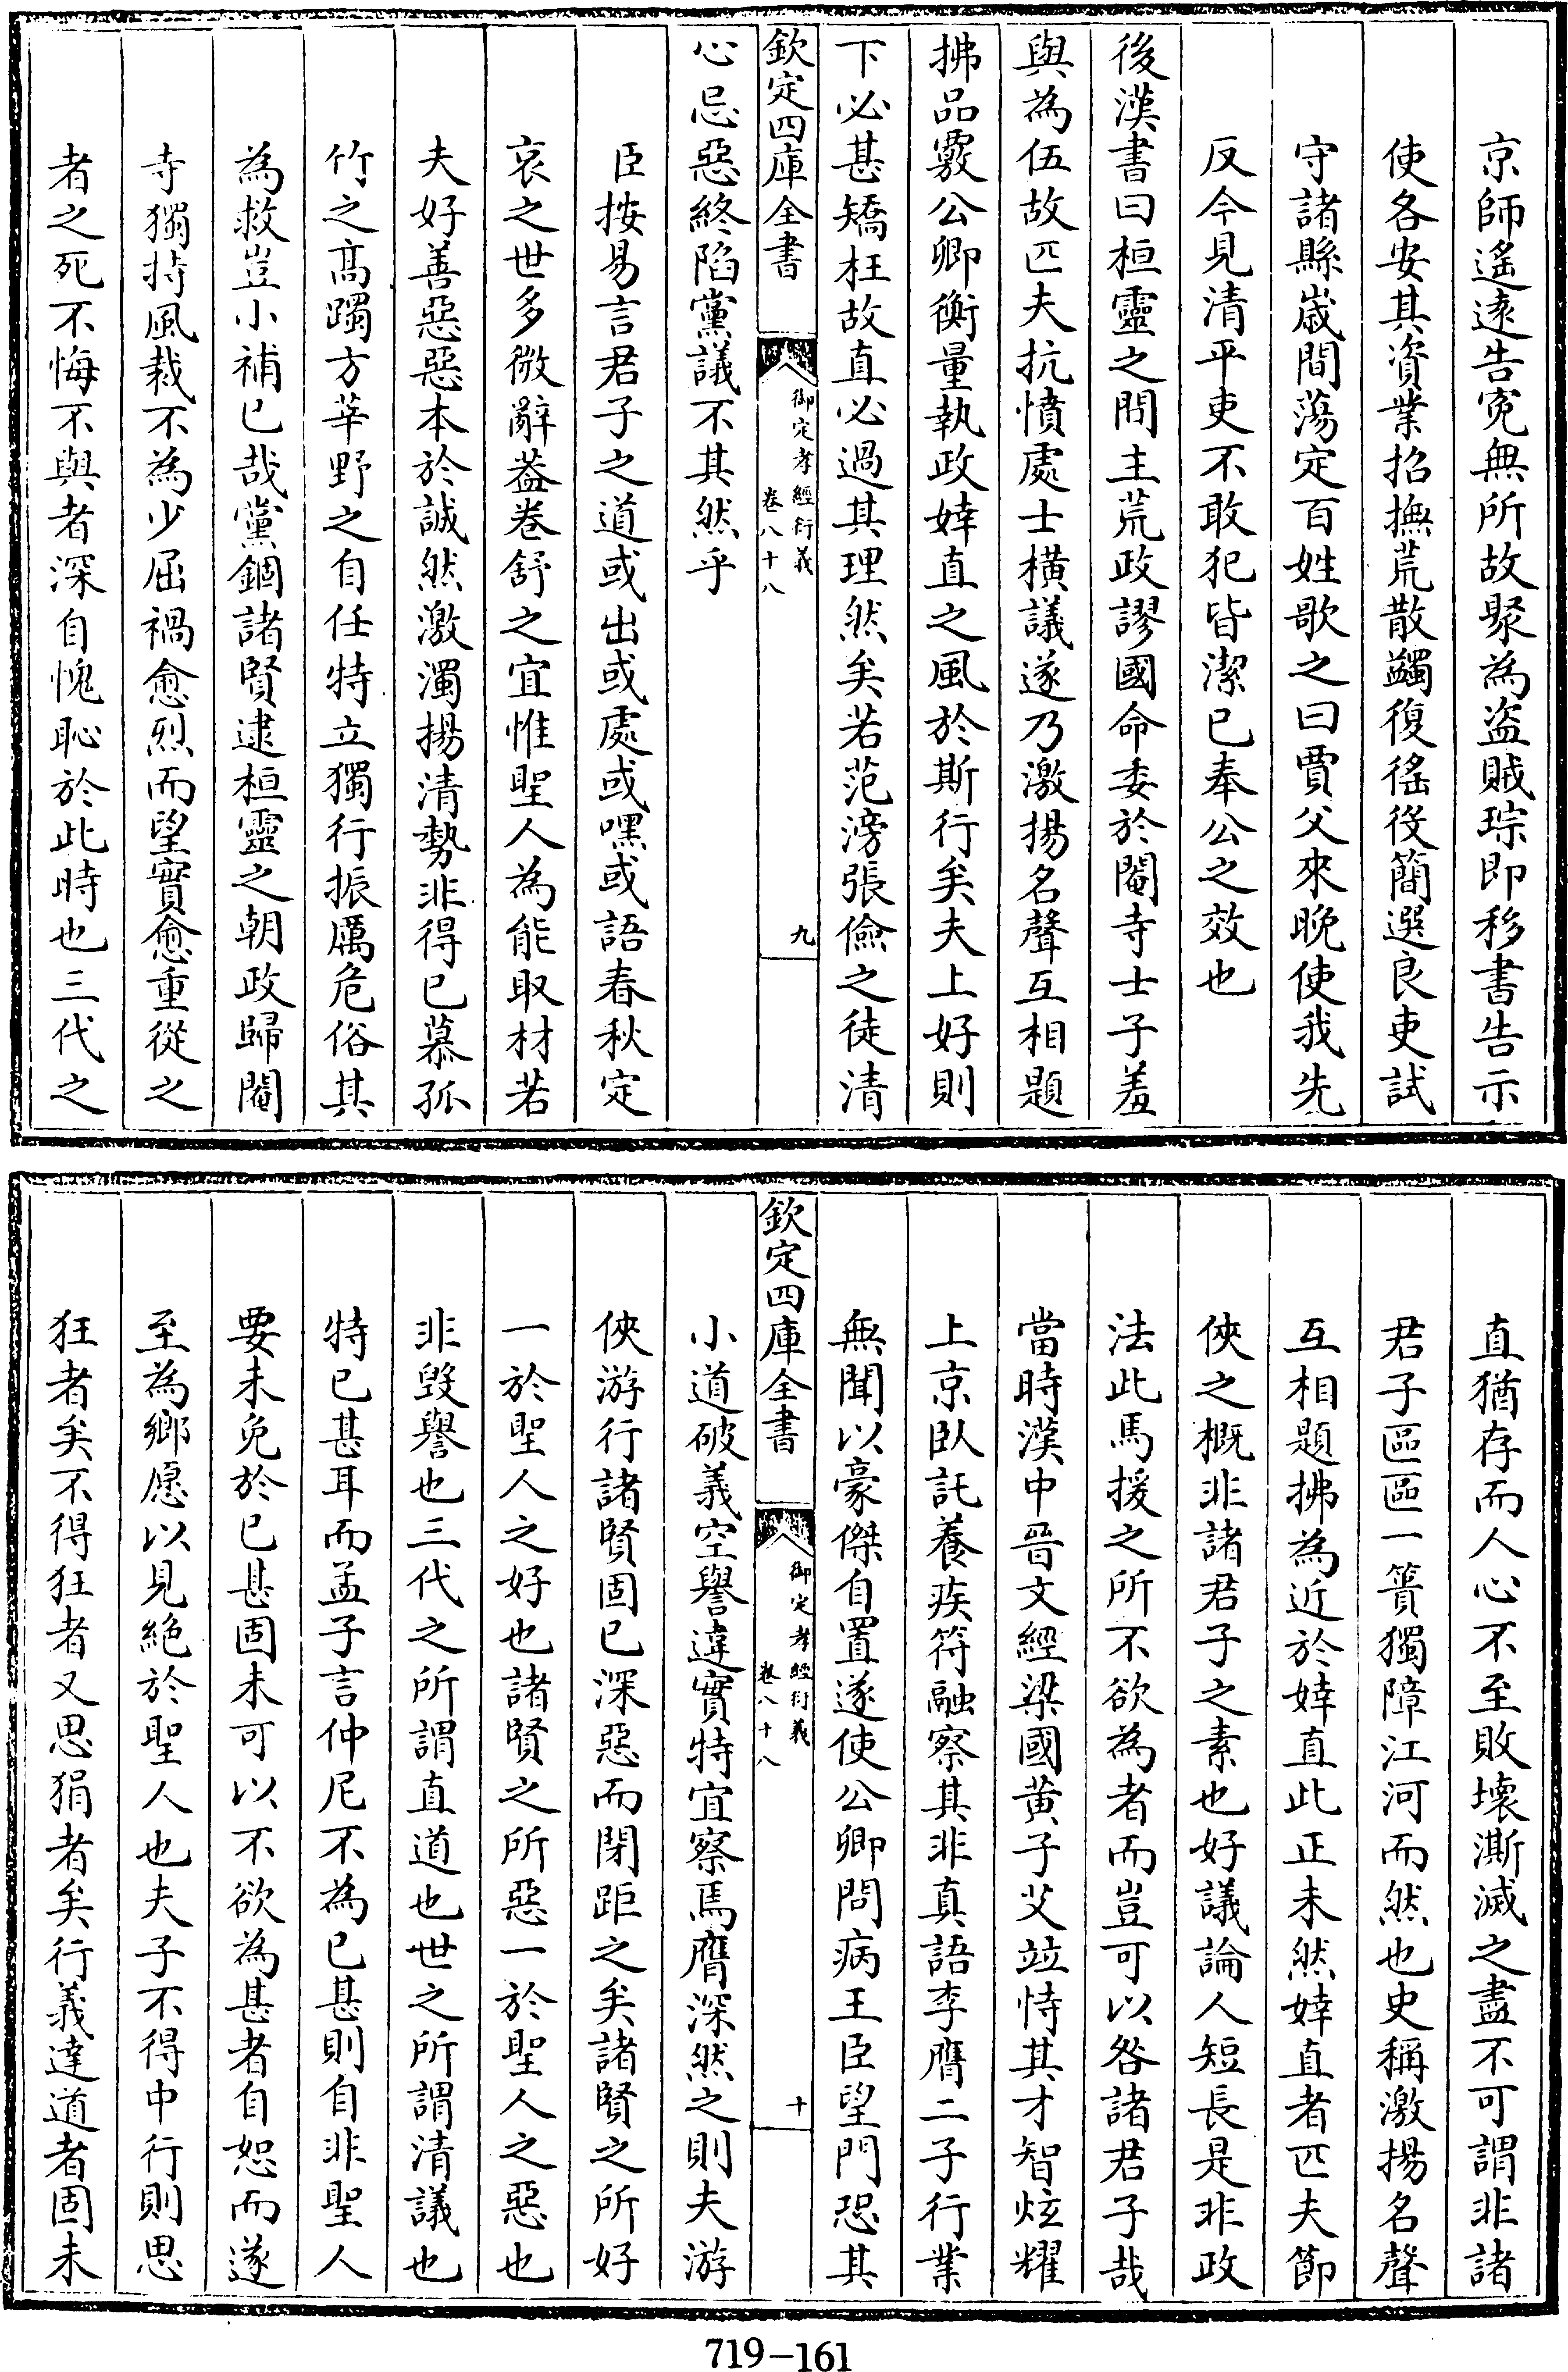 京師遙遠告寃無所故聚為盗賊琮即移書告示
使各安其資業招撫荒散蠲復徭役簡選良吏試
守諸縣嵗間蕩定百姓歌之曰賈父來晚使我先
反今見清平吏不敢犯皆潔已奉公之效也
後漢書曰桓靈之間主荒政謬國命委於閹寺士子羞
與為伍故匹夫抗憤處士橫議遂乃激揚名聲互相題
拂品覈公卿衡量執政婞直之風於斯行矣夫上好則
下必甚矯枉故直必過其理然矣若范滂張儉之徒清
欽定四庫全書
御定孝經衍義
卷八十八
九
心忌惡終陷黨議不其然乎
臣按易言君子之道或出或處或嘿或語春秋定
哀之世多微辭葢卷舒之宜惟聖人為能取材若
夫好善惡惡本於誠然激濁揚清勢非得已慕孤
竹之髙躅方莘野之自任特立獨行振厲危俗其
為救豈小補已哉黨錮諸賢逮桓靈之朝政歸閹
寺獨持風裁不為少屈禍愈烈而望實愈重從之
者之死不悔不與者深自愧恥於此時也三代之
直猶存而人心不至敗壊澌滅之盡不可謂非諸
君子區區一簣獨障江河而然也史稱激揚名聲
互相題拂為近於婞直此正未然婞直者匹夫節
俠之概非諸君子之素也好議論人短長是非政
法此馬援之所不欲為者而豈可以咎諸君子哉
當時漢中晉文經梁國黄子艾竝恃其才智炫耀
上京臥託養疾符融察其非真語李膺二子行業
無聞以豪傑自置遂使公卿問病王臣望門恐其
欽定四庫全書
御定孝經衍義
卷八十八
十
小道破義空譽違實特宜察焉膺深然之則夫游
俠游行諸賢固已深惡而閉距之矣諸賢之所好
一於聖人之好也諸賢之所惡一於聖人之惡也
非毁譽也三代之所謂直道也世之所謂清議也
特已甚耳而孟子言仲尼不為已甚則自非聖人
要未免於已甚固未可以不欲為甚者自恕而遂
至為鄉愿以見絶於聖人也夫子不得中行則思
狂者矣不得狂者又思狷者矣行義達道者固未
719-161